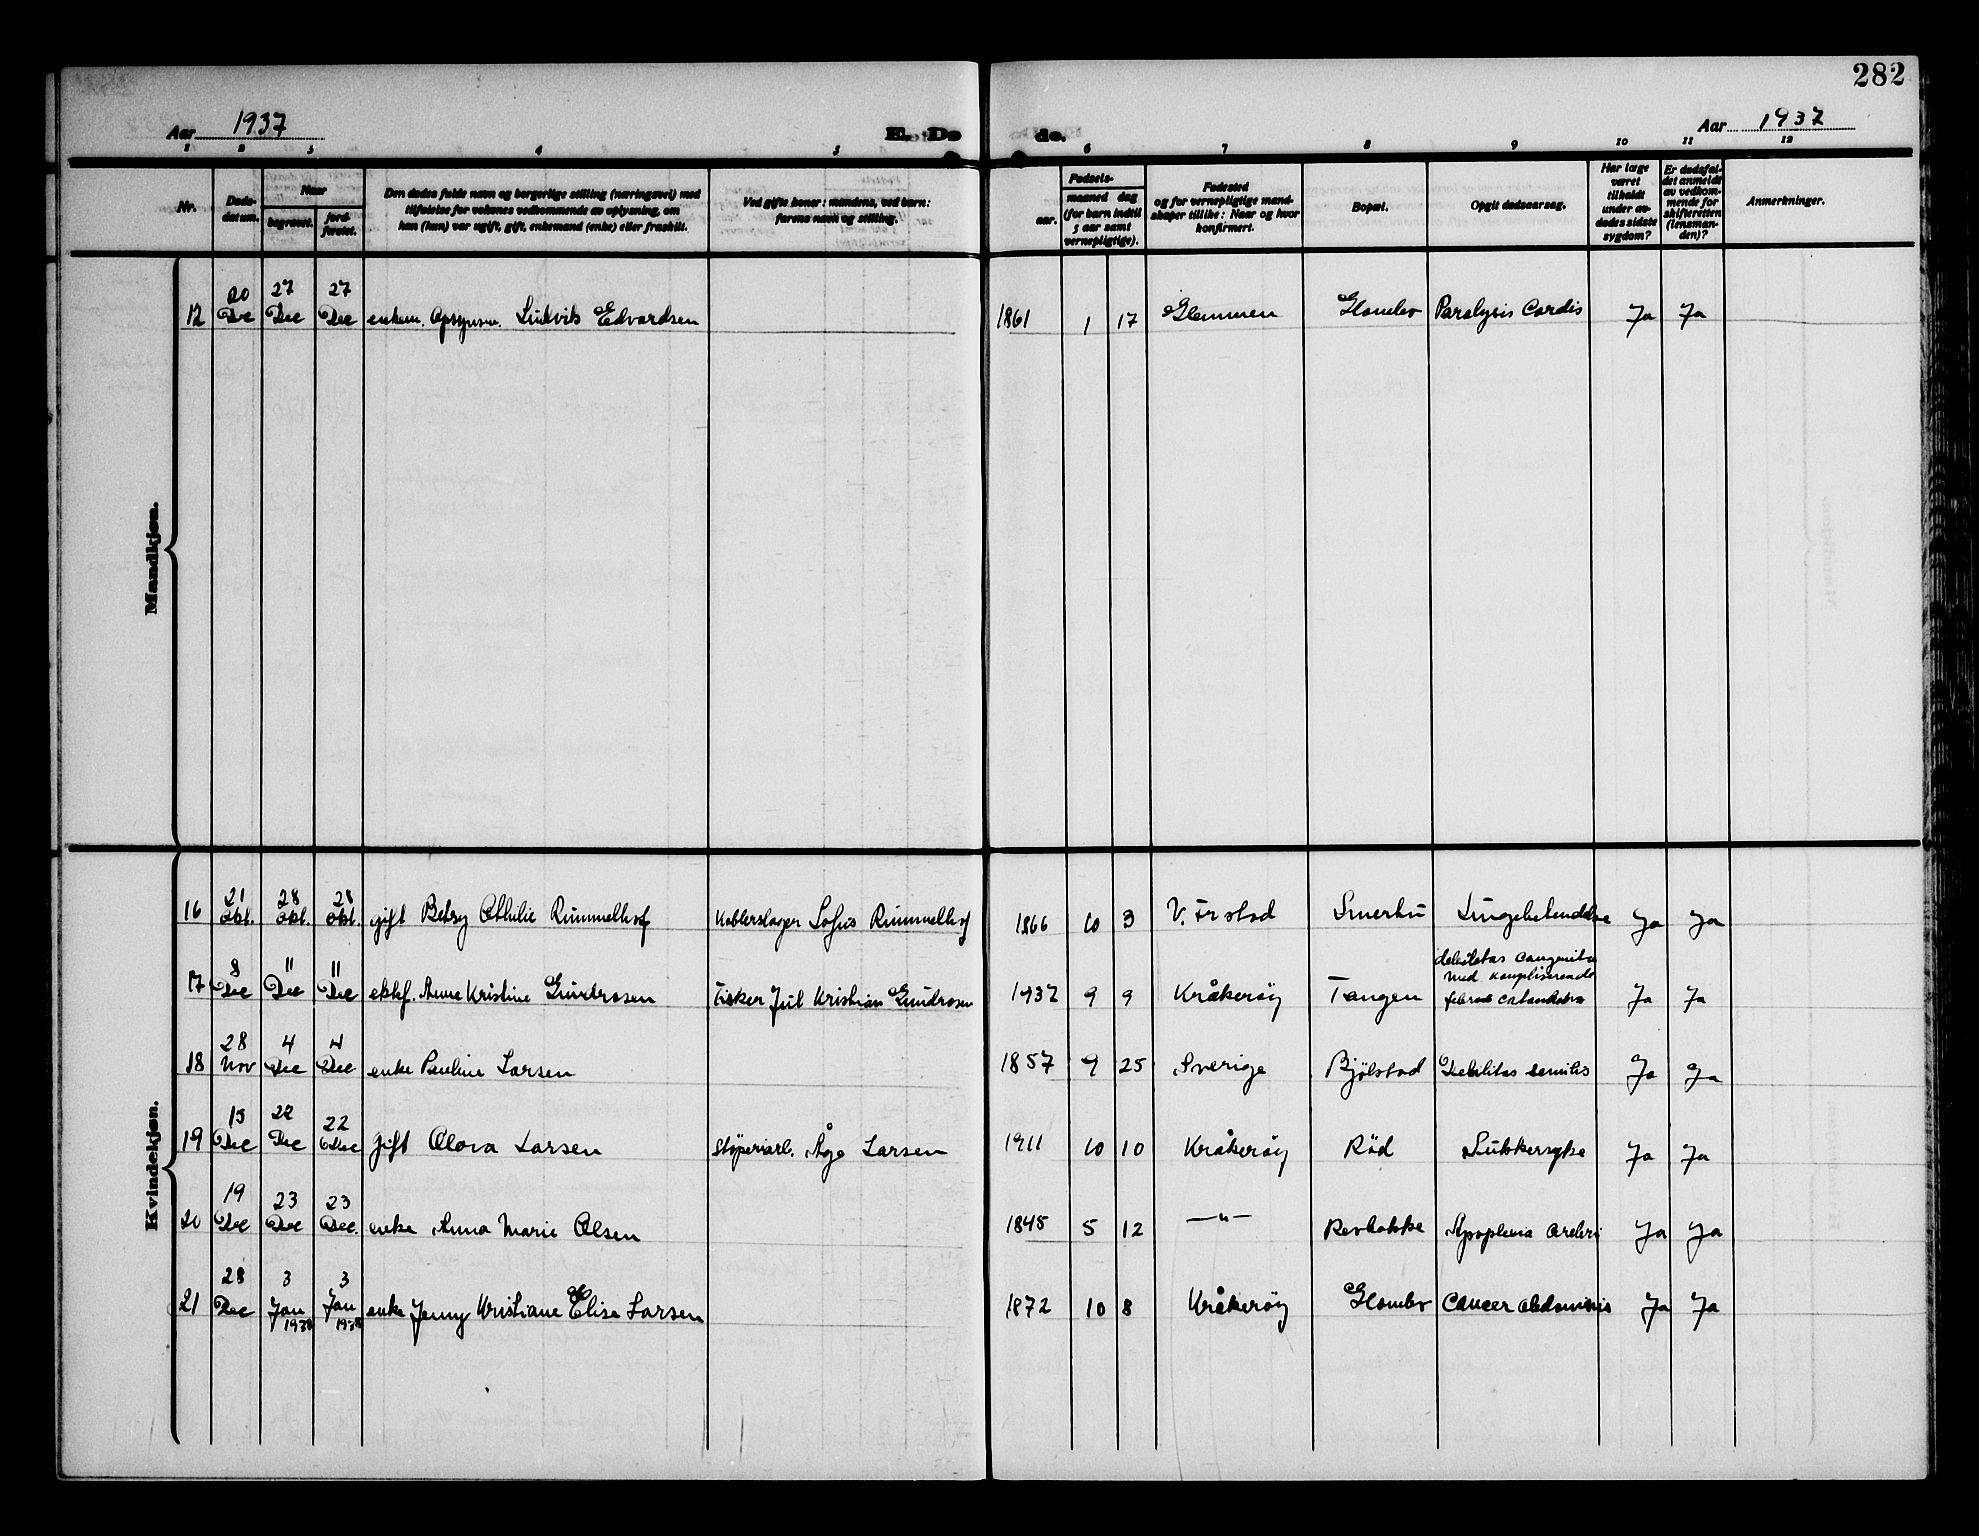 282
Aar 1937 E. Dø
de. Aar 1937
1 2 3 4 5 6 7 8 9 10 11 12
Nr.
Døds-
datum.
Naar
begravet.
jord-
fæstet.
Den dødes fulde navn og borgerlige stilling (næringsvei) med
tilføielse for voksnes vedkommende av oplysning, om
han (hun) var ugift, gift, enkemand (enke) eller fraskilt.
Ved gifte koner: mandens, ved barn:
farens navn og stilling.
Fødsels-
aar.
maaned dag
(for barn indtil
5 aar samt
vernepligtige).
Fødested
og for vernepligtige mand-
skaper tillike: Naar og hvor
konfirmert.
Bopæl.
Opgit dødsaarsag.
Har læge
været
tilkaldt
under av-
dødes sidste
sygdom?
Er dødsfal-
det anmeldt
av vedkom-
mende for
skifteretten
(lensman-
den)?
Anmerkninger.
Mandkjøn.
20 27 27
12 De Dec Dec enkem. Opsynsm. Ludvik Edvardsen 1861 1 17 Glemmen Glombo Paralysis Cordis Ja Ja
Kvindekjøn.
21 28 28
16 Okt. Okt. Okt. gift Betsy Othilie Rummelhof Koblerslager Sofus Rummelhof 1866 10 3 V. Frstad Smertu Lungebetendelse Ja Ja
8 11 11 debilitas congenita
med kompliserende
17 Dec Dec Dec ektef. Anne Kristine Gundrosen Fisker Jul Kristian Gundrosen 1937 9 9 Kråkerøy Tangen Ja Ja
28 4 4
18 Nov Dec Dec enke Pauline Larsen 1857 9 25 Sverige Bjölstad Debilitas senilis Ja Ja
15 22 22
19 Dec Dec Dec gift Alova Larsen Støperiarb. Åge Larsen 1911 10 10 Kråkerøy Rød Sukkersyke Ja Ja
19 23 23
20 Dec Dec Dec. enke Anna Marie Olsen 1845 5 12 —"— Revbakke Apoplexia cerebri Ja Ja
28 3 3
21 Dec Jan Jan enke Jenny Kristiane Elise Larsen 1872 10 8 Kråkerøy Glombo Cancer abdominis Ja Ja
1938 1938